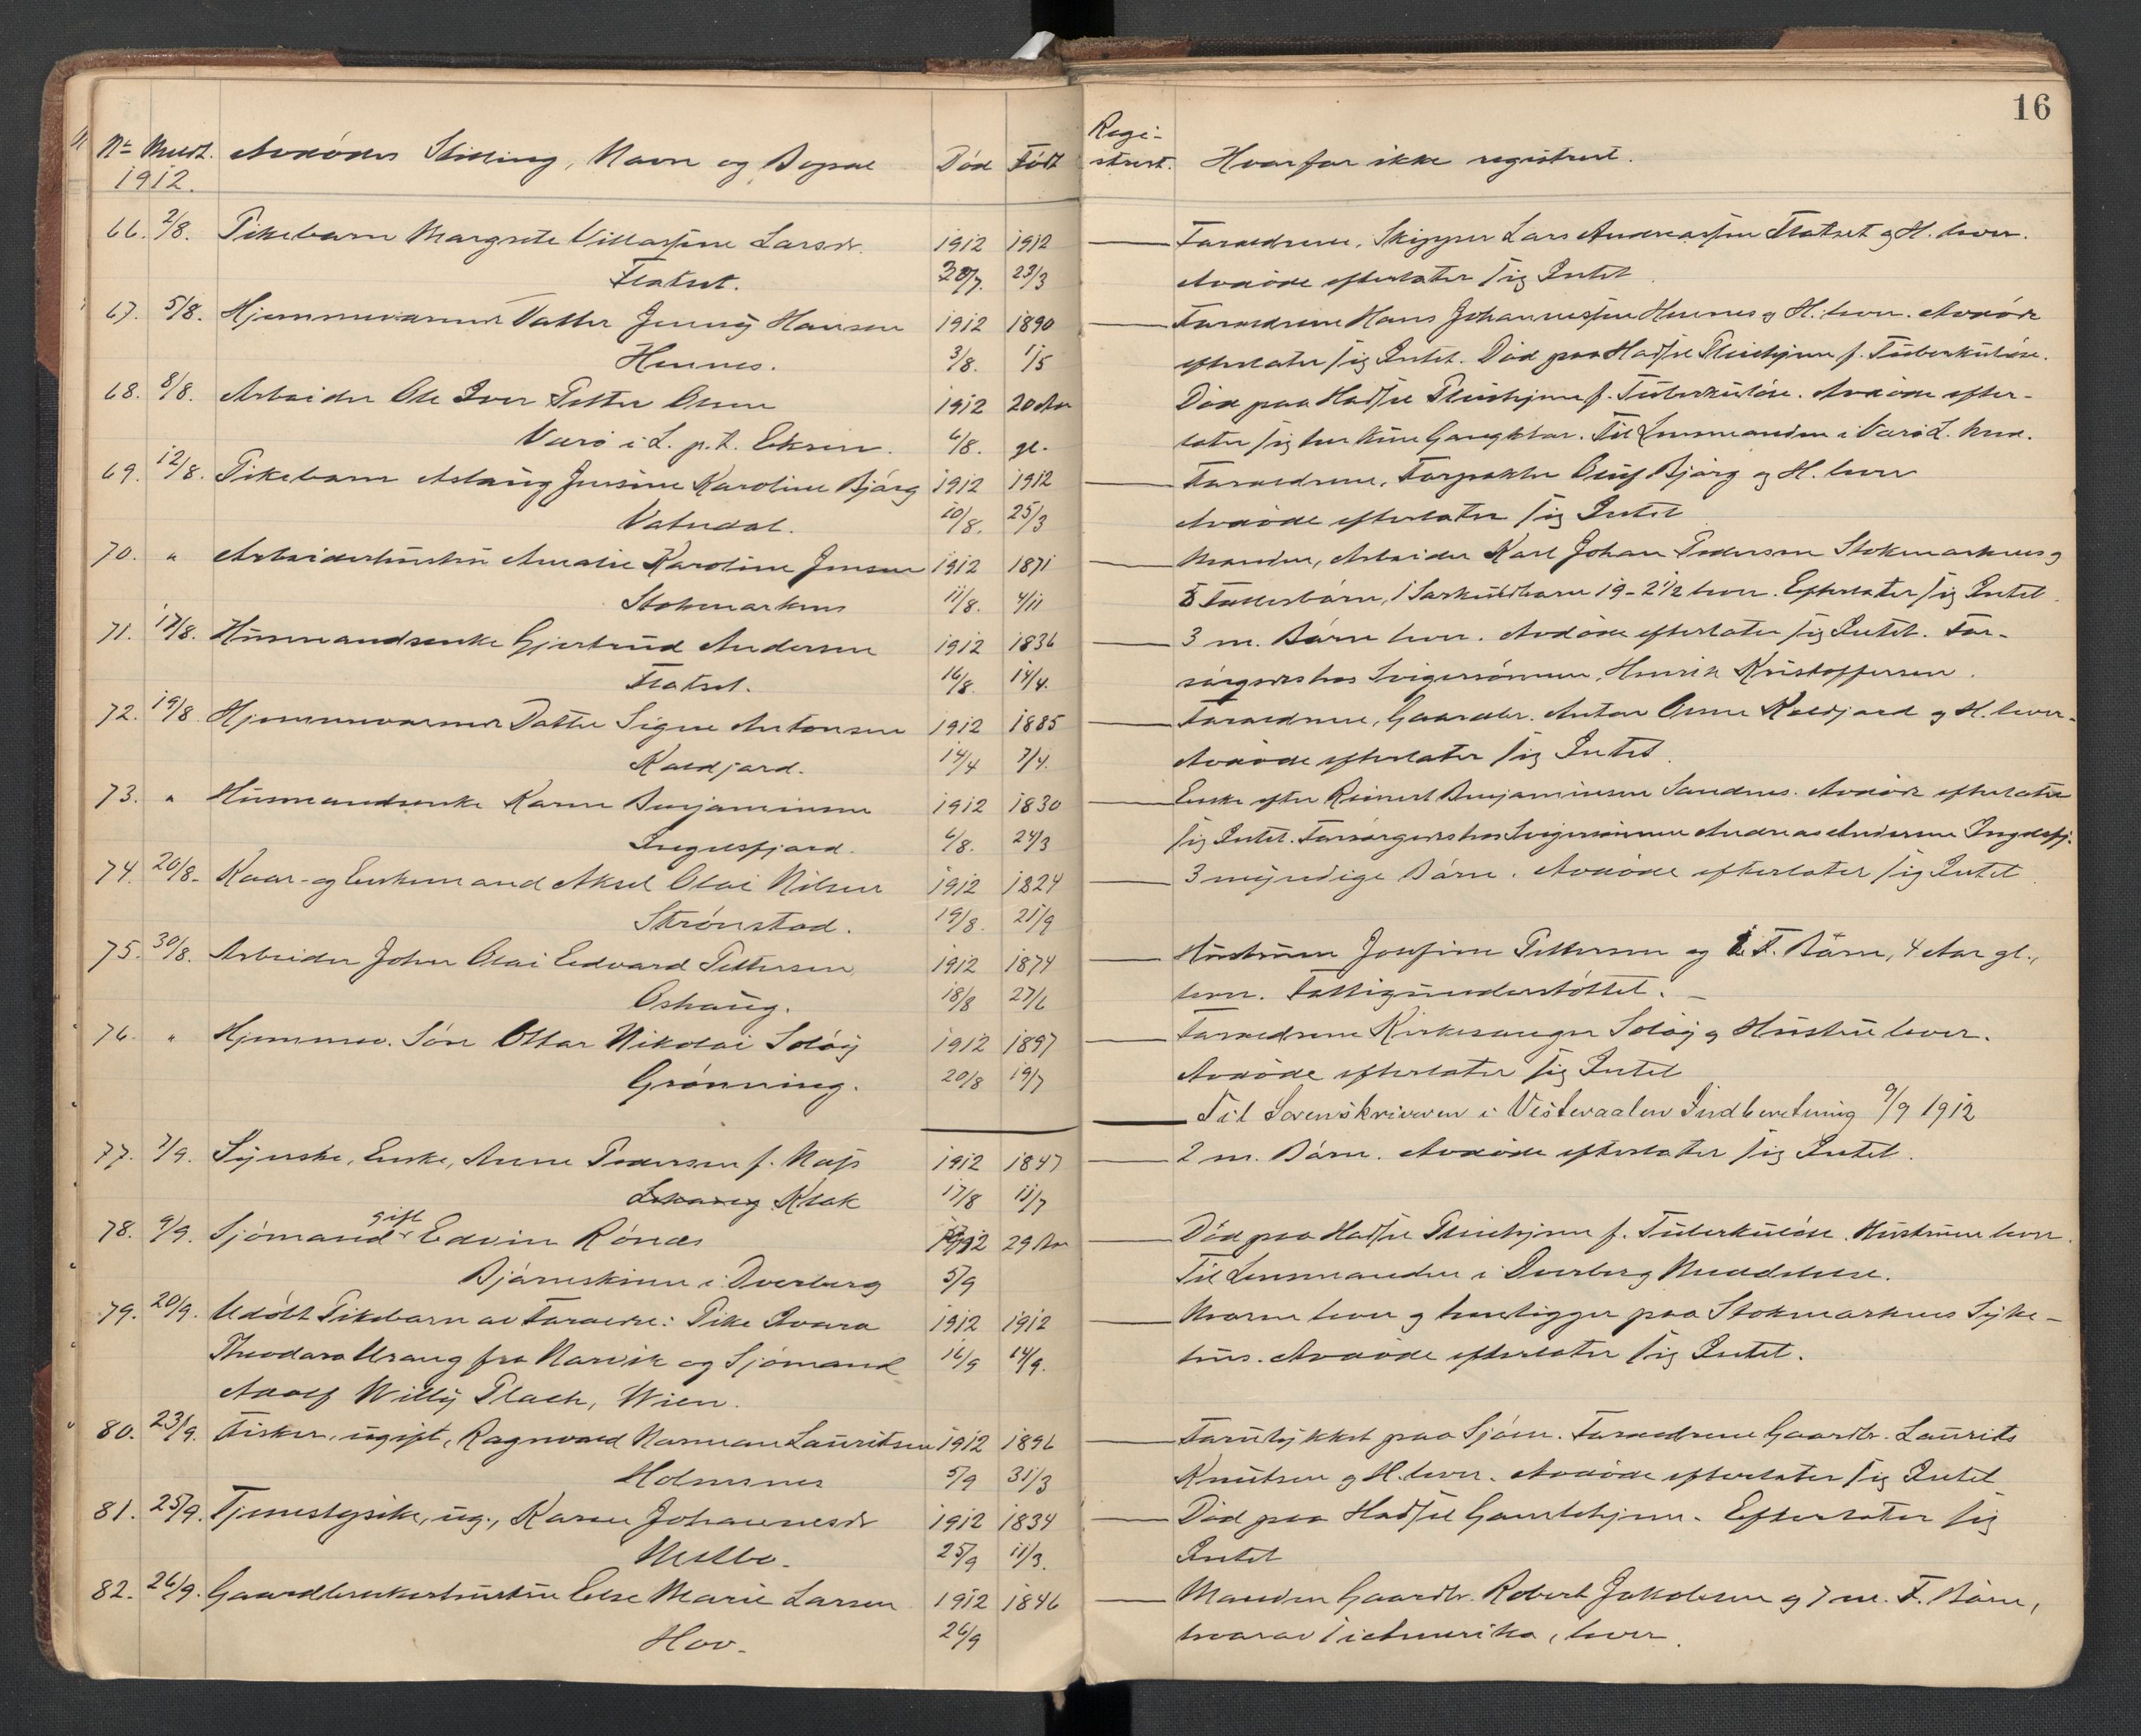 16
Nr. Meldt. Avdødes Stilling, Navn og Bopæl Død Født Regi-
strert. Hvorfor ikke registrert.
1912.
66. 2/8. Pikebarn Margrete Villassine Larsdr. 1912 1912 Forældrene, Skipper Lars Andreassen Flatset og H. lever.
Flatset. 30/7. 23/3 Avdøde efterlater sig Intet
67. 5/8. Hjemmeværende Datter Jenny Hansen 1912 1890 Forældrene Hans Johannessen Hennes og H. lever. Avdøde
Hennes. 3/8. 1/5 efterlater sig Intet. Død paa Hadsel Pleiehjem f. Tuberkuløse.
68. 8/8. Arbeider Ole Iver Petter Olsen 1912 20 Aar Død paa Hadsel Pleiehjem f. Tuberkuløse. Avdøde efter-
Værø i L. p.t. Eksren. 6/8. gl. later sig kun sine Gangklær. Til Lensmanden i Værø L. Med.
69. 12/8. Pikebarn Aslaug Jensine Karoline Bjørg 1912 1912 Forældrene, Forpakter Oluf Bjørg og H. lever
Vatndal. 10/8. 25/3 Avdøde efterlater sig Intet
70. " Arbeiderhustru Amalie Karoline Jensen 1912 1871 Manden, Arbeider Karl Johan Pedersen Stokmarknes og
Stokmarknes 11/8. 4/11 8 Fællesbørn, 1 Særkuldbarn 19-2 1/2 lever. Efterlater sig Intet.
71. 17/8. Husmandsenke Gjertrud Andersen 1912 1836 3 m. Børn lever. Avdøde efterlater sig Intet. For-
Flatset. 16/8. 14/4. sørgedes hos Svigersønnen, Henrik Kristoffersen.
72. 19/8. Hjemmeværende Datter Signe Antonsen 1912 1885 Forældrene, Gaardbr. Anton Olsen Kaldjord og H. lever.
Kaldjord. 14/4 7/4. Avdøde efterlater sig Intet.
73. " Husmandsenke Karen Benjaminsen 1912 1830 Enke efter Reinert Benjaminsen Sandnes. Avdøde efterlater
Ingelsfjord. 6/8. 24/3 sig Intet. Forsørgedes hos Svigersønnen Andreas Andersen Ingelsfj.
74. 20/8. Kaar- og Enkemand Aksel Olai Nilsen 1912 1824 3 myndige Børn. Avdøde efterlater sig Intet.
Strønstad. 19/8. 21/9
75. 30/8. Arbeider Johan Olai Edvard Pettersen 1912 1874 Hustruen Josefine Pettersen og 1 F. Barn, 4 Aar gl.,
Oshaug. 18/8 27/6 lever. Fattigunderstøttet.
76. " Hjemmev. Søn Ottar Nikolai Soløy 1912 1897 Forældrene Kirkesanger Soløy og Hustru lever.
Grønning. 20/8 19/7 Avdøde efterlater sig Intet
Til Sorenskriveren i Vesteraalen Indberetning 9/9 1912
77. 7/9. Syerske, Enke, Anne Pedersen f. Næss 1912 1847 2 m. Børn. Avdøde efterlater sig Intet.
Klak 17/8 11/7
78. 9/9. Sjømand gift Edvin Rønæs 1912 29 Aar Død paa Hadsel Pleiehjem f. Tuberkuløse. Hustruen lever.
Bjørnskinn i Dverberg 5/9 Til Lensmanden i Dverberg Meddelelse.
79. 20/9. Udøbt Pikebarn av Forældre: Pike Ovara 1912 1912 Moren lever og henligger paa Stokmarknes Syke-
Theodora Urang fra Narvik og Sjømand 16/9 14/9. hus. Avdøde efterlater sig Intet.
Adolf Willy Plach, Wien.
80. 23/9. Fisker, ugift, Ragnvald Norman Lauritsen 1912 1896 Forulykket paa Sjøen. Forældrene Gaardbr. Laurits
Holmsnes 5/9 31/3 Knutsen og H. lever. Avdøde efterlater sig Intet
81. 25/9. Tjenestepike, ug., Karen Johannesdr 1912 1834 Død paa Hadsel Gamlehjem. Efterlater sig
Melbo. 25/9 11/3. Intet
82. 26/9. Gaardbrukerhustru Else Marie Larsen 1912 1846 Manden Gaardbr. Robert Jakobsen og 7 m. F. Børn,
Hov. 26/9 hvorav 1 i Amerika, lever.